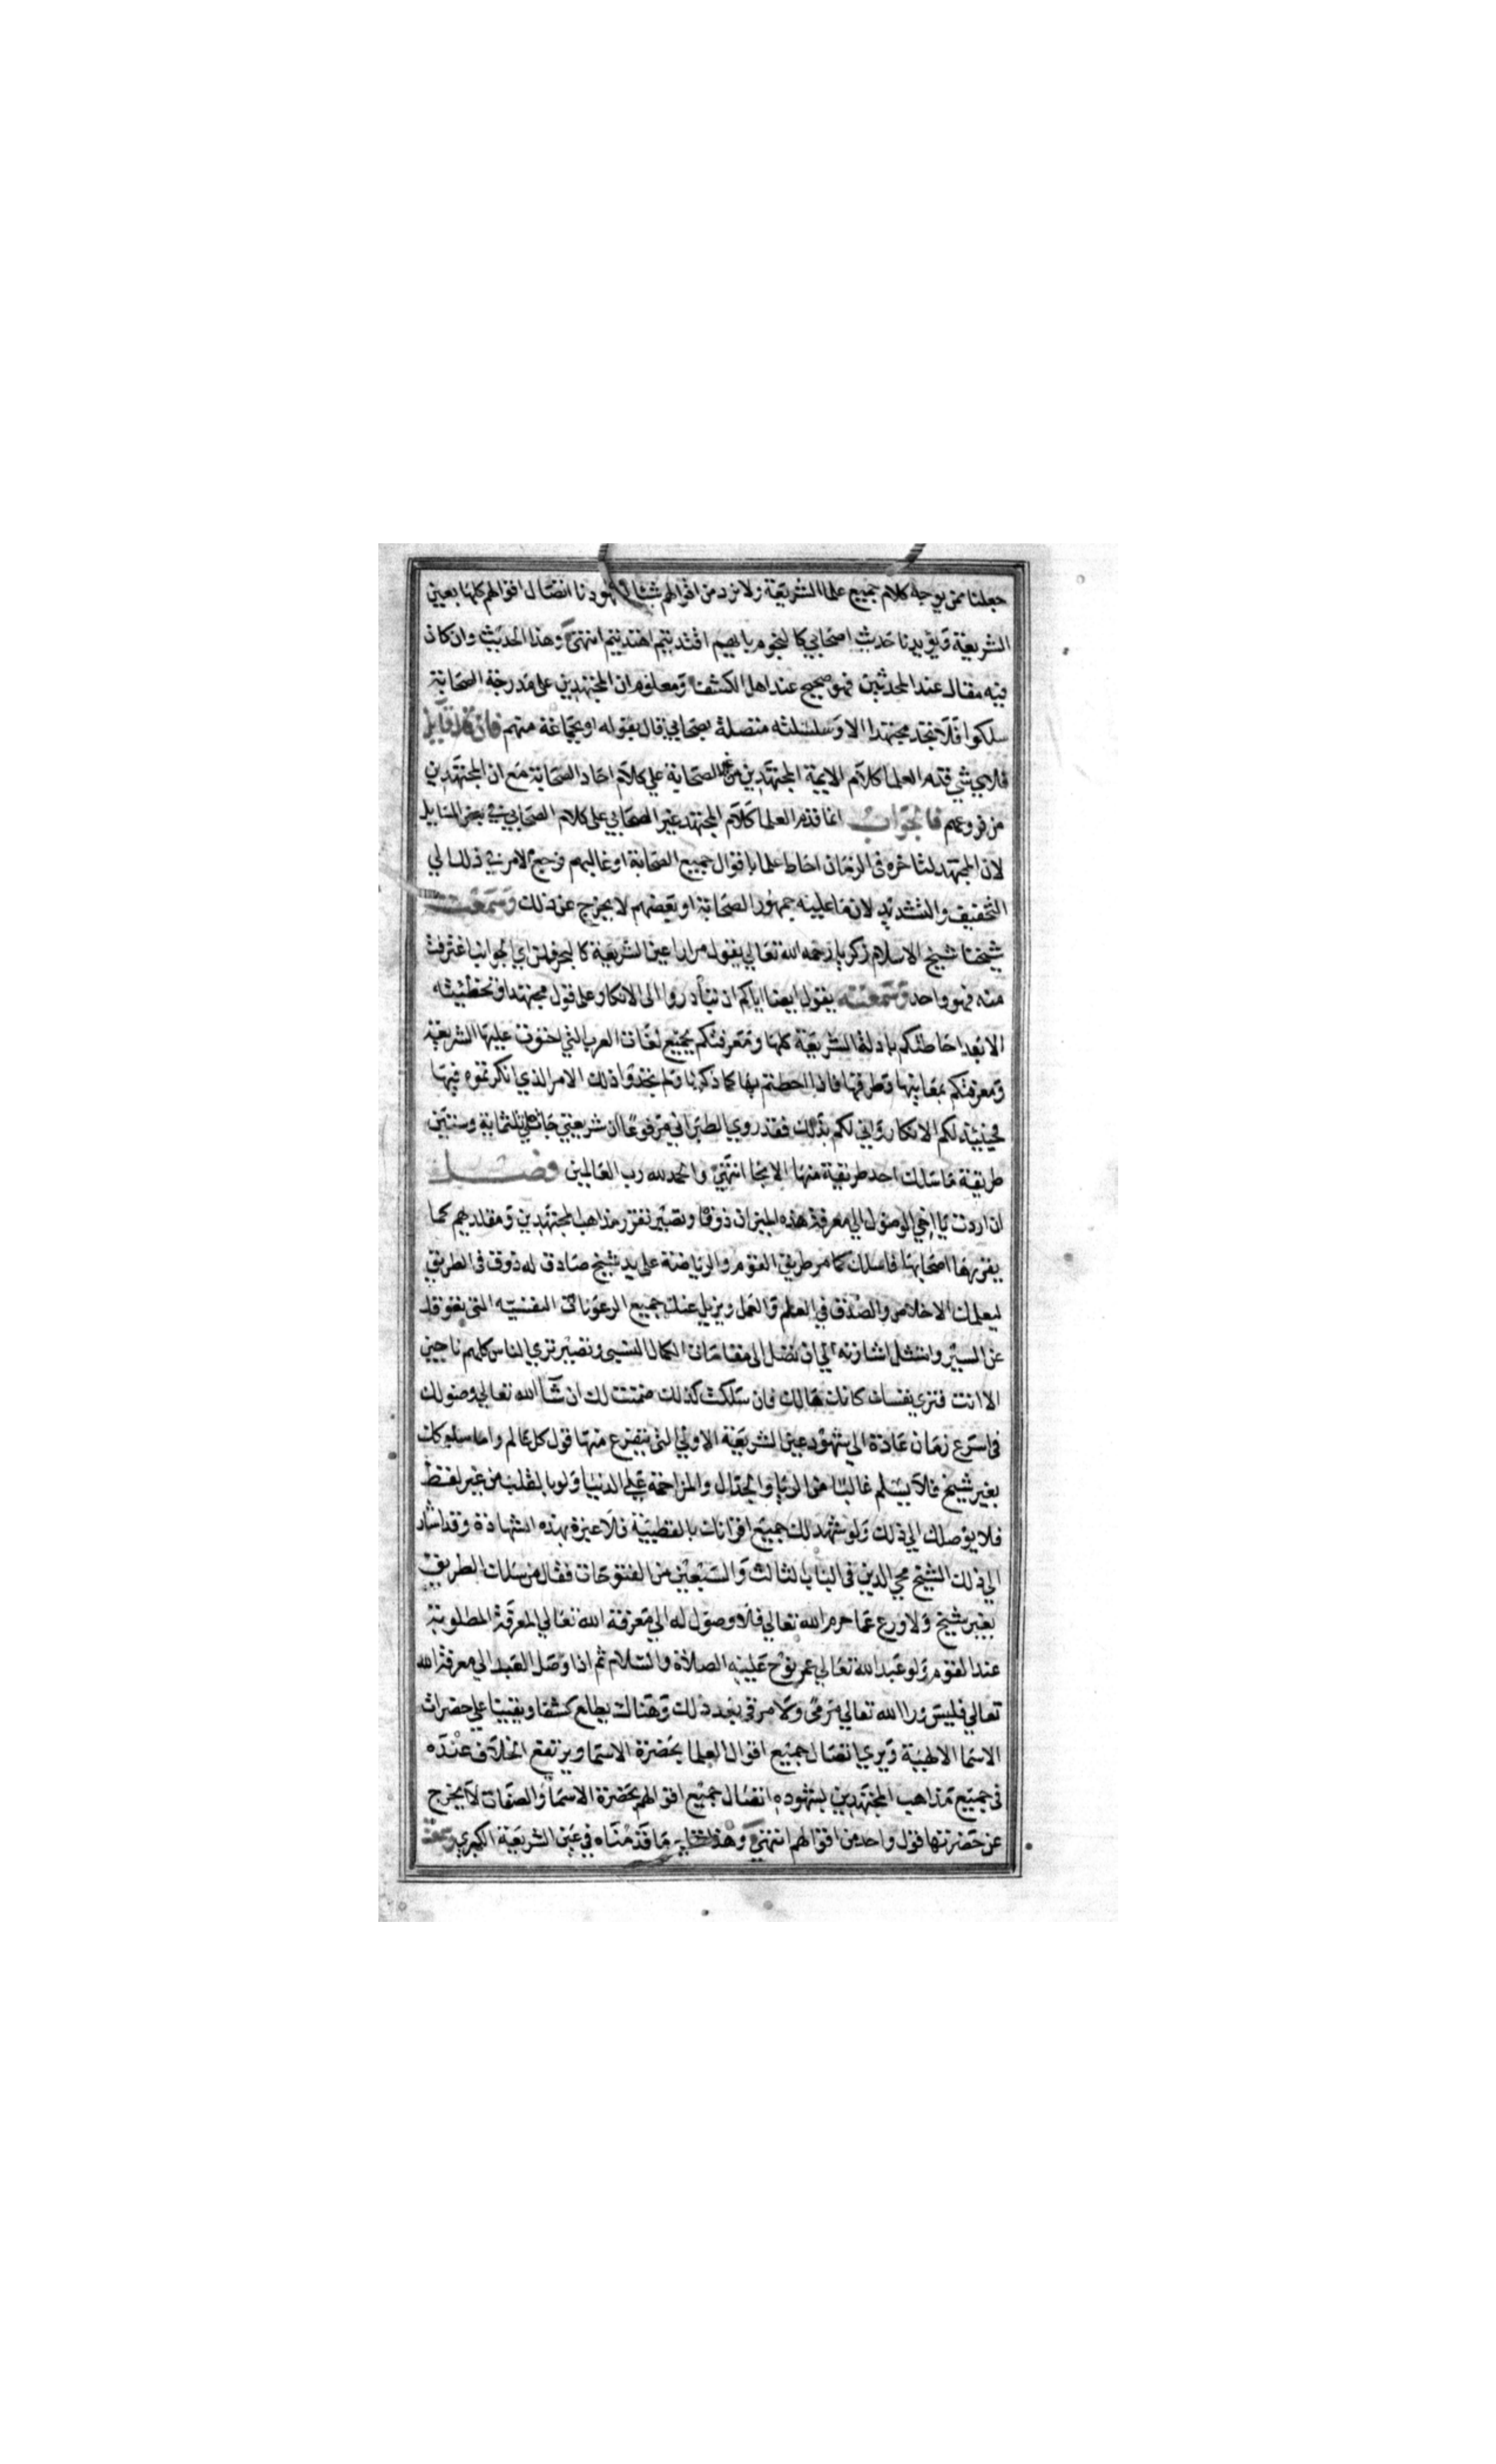 جعلنا ممن يوجه كلام جميع علما الشريعة ولا نرد من اقوالهم شيئا لشهودنا اتصال اقوالهم كلها بعين
الشريعة ويؤيدنا حديث اصحابي كالنجوم بايهم اقتديتم اهتديتم انتهى وهذا الحديث وان كان
فيه مقال عند المحدثين فهو صحيح عند اهل الكشف ومعلوم ان المجتهدين على مدرجة الصحابة
سلكوا فلا تجد مجتهدا الا وسلسلته متصلة بصحابي قال بقوله او بجماعة منهم فان قال قايل
فلاي شي قدم العلما كلام الايمة المجتهدين من غير الصحابة علي كلام احاد الصحابة مع ان المجتهدين
من فروعهم فالجواب انما قدم العلما كلام المجتهد غير الصحابي على كلام الصحابي في بعض المسايل
لان المجتهد لتاخره في الزمان احاط علما باقوال جميع الصحابة او غالبهم فرجع الامر في ذلك الي
التخفيف والتشديد لان ما عليه جمهور الصحابة او بعضهم لا يخرج عن ذلك وسمعت
شيخنا شيخ الاسلام زكريا رحمه الله تعالي يقول مرارا عين الشريعة كالبحر فمن اي الجوانب اغترفت
منه فهو واحد وسمعته يقول ايضا اياكم ان تبادروا الى الانكار على قول مجتهد او تخطئيته
الا بعد احاطتكم بادلة الشريعة كلها ومعرفتكم بجميع لغات العرب التي احتوت عليها الشريعة
ومعرفتكم بمعانيها وطرقها فاذا احطتم بها كما ذكرنا ولم تجدوا ذلك الامر الذي انكرتموه فيها
فحينيذ لكم الانكار واني لكم بذلك فقد روي الطبراني مرفوعا ان شريعتي جات علي ثلثماية وستين
طريقة ما سلك احد طريقة منها الا نجا انتهى والحمد لله رب العالمين فصل
ان اردت يا اخي الوصول الي معرفة هذه الميزان ذوقا وتصير تقرر مذاهب المجتهدين ومقلديهم كما
يقررها اصحابها فاسلك كما مر طريق القوم والرياضة على يد شيخ صادق له ذوق في الطريق
ليعلمك الاخلاص والصدق في العلم والعمل ويزيل عنك جميع الرعونات النفسية التي تعوقك
عن السير وامتثل اشارته الي ان تصل الى مقامات الكمال النسبي وتصير تري الناس كلهم ناجين
الا انت فتري نفسك كانك هالك فان سلكت كذلك ضمنت لك ان شا الله تعالي وصولك
في اسرع زمان عادة الي شهود عين الشريعة الاولي التي يتفرع منها قول كل عالم واما سلوكك
بغير شيخ فلا يسلم غالبا من الريا والجدال والمزاحمة علي الدنيا ولو بالقلب من غير لفظ
فلا يوصلك الي ذلك ولو شهد لك جميع اقرانك بالقطبية فلا عبرة بهذه الشهادة وقد اشار
الي ذلك الشيخ محي الدين في الباب الثالث والسبعين من الفتوحات فقال من سلك الطريق
بغير شيخ ولا ورع عما حرم الله تعالي فلا وصول له الي معرفة الله تعالي المعرفة المطلوبة
عند القوم ولو عبد الله تعالي عمر نوح عليه الصلاة والسلام ثم اذا وصل العبد الي معرفة الله
تعالي فليس ورا الله تعالي مرمي ولا مرقي بعد ذلك وهناك يطلع كشفا ويقينا علي حضرات
الاسما الالهية ويري اتصال جميع اقوال العلما بحضرة الاسما ويرتفع الخلاف عنده
في جميع مذاهب المجتهدين لشهوده اتصال جميع اقوالهم بحضرة الاسما والصفات لا يخرج
عن حضرتها قول واحد من اقوالهم انتهي وهذا نظير ما قدمناه في عين الشريعة الكبري وسمعت